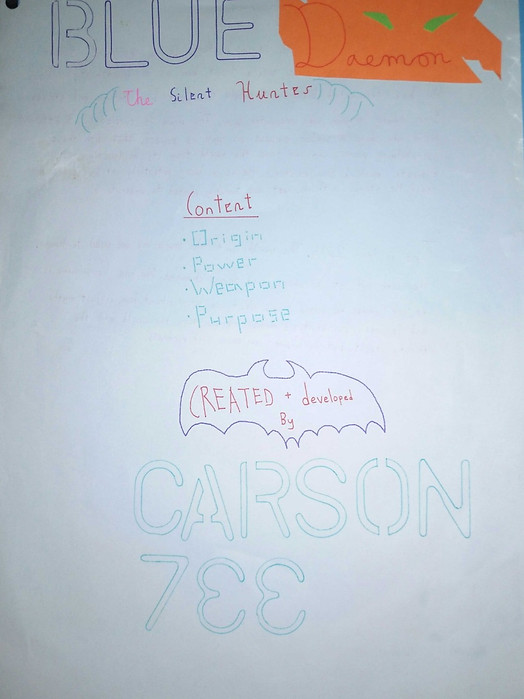 BLUE Daemon
The Silent Hunter
Content
· Origin
· Power
· Weapon
· Purpose
CREATED + developed
By
CARSON
7EE